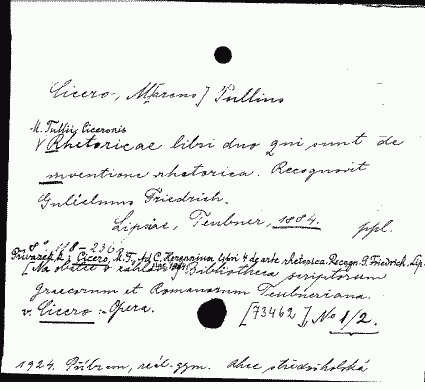 Cicero, M[arcus] Tullius
M. Tullii Ciceronis
Rhetoricae libri duo qui sunt de
inventione rhetorica. Recognovit
Gulielmus Friedrich.
Lipsiae, Teubner, 1884. ppl.
8° 118-236
Přivázek k: Cicero, M. T., Ad C. Herennium libri 4 de arte rhetorica. Recogn. G. Friedrich. Lip.
[Na obálce a záhlaví: Bibliotheca scriptorum
Graecorum et Romanorum Teubneriana.
v. Cicero: Opera. [73462], No 1/2.
1924. Příbram, reál. gym. Obec středniholská